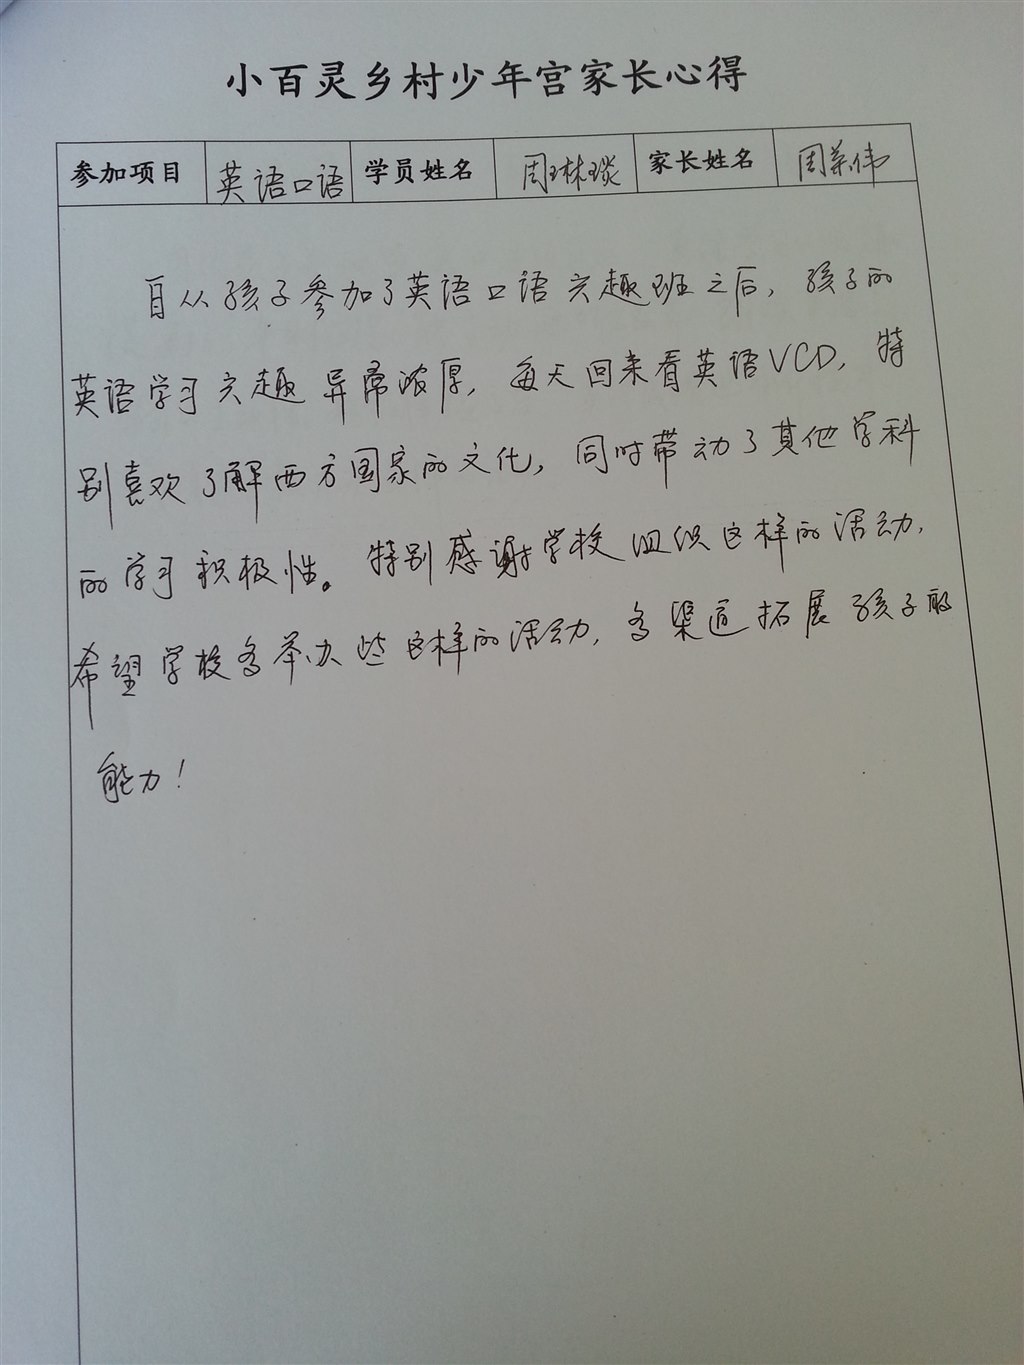 小百灵乡村少年宫家长心得
参加项目 英语口语 学员姓名 周琳琰 家长姓名 周荣伟
自从孩子参加了英语口语兴趣班之后，孩子的
英语学习兴趣异常浓厚，每天回来看英语VCD，特
别喜欢了解西方国家的文化，同时带动了其他学科
的学习积极性。特别感谢学校组织这样的活动，
希望学校多举办些这样的活动，多渠道拓展孩子的
能力！